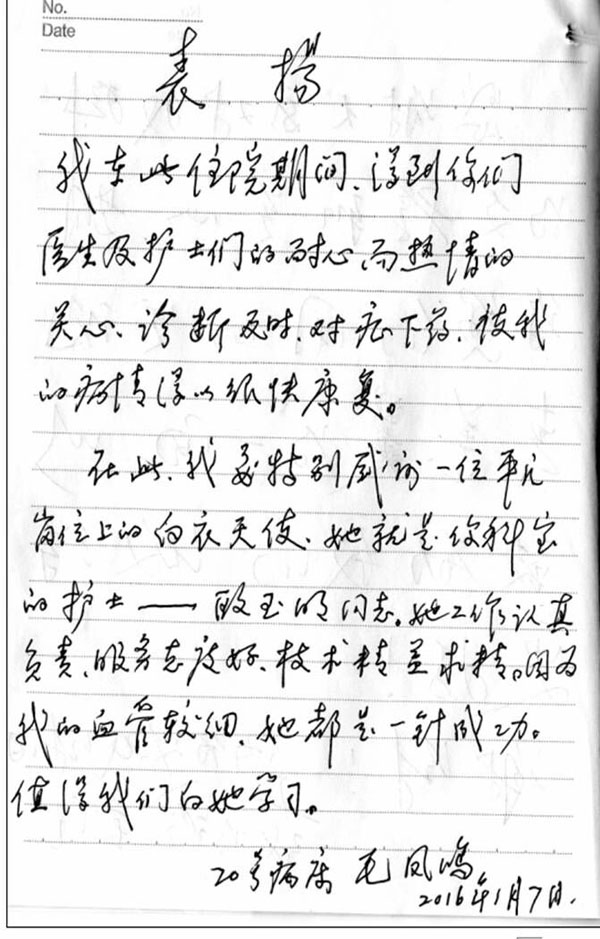 No.
Date
表 扬
我在此住院期间、得到你们
医生及护士们的耐心而热情的
关心、诊断及时、对症下药、使我
的病情得以很快康复。
在此、我要特别感谢一位平凡
岗位上的白衣天使、她就是你科室
的护士——殷玉明同志。她工作认真
负责、服务态度好、技术精益求精。因为
我的血管较细、她都是一针成功。
值得我们向她学习。
20号病床 毛凤鸣
2016年1月7日.